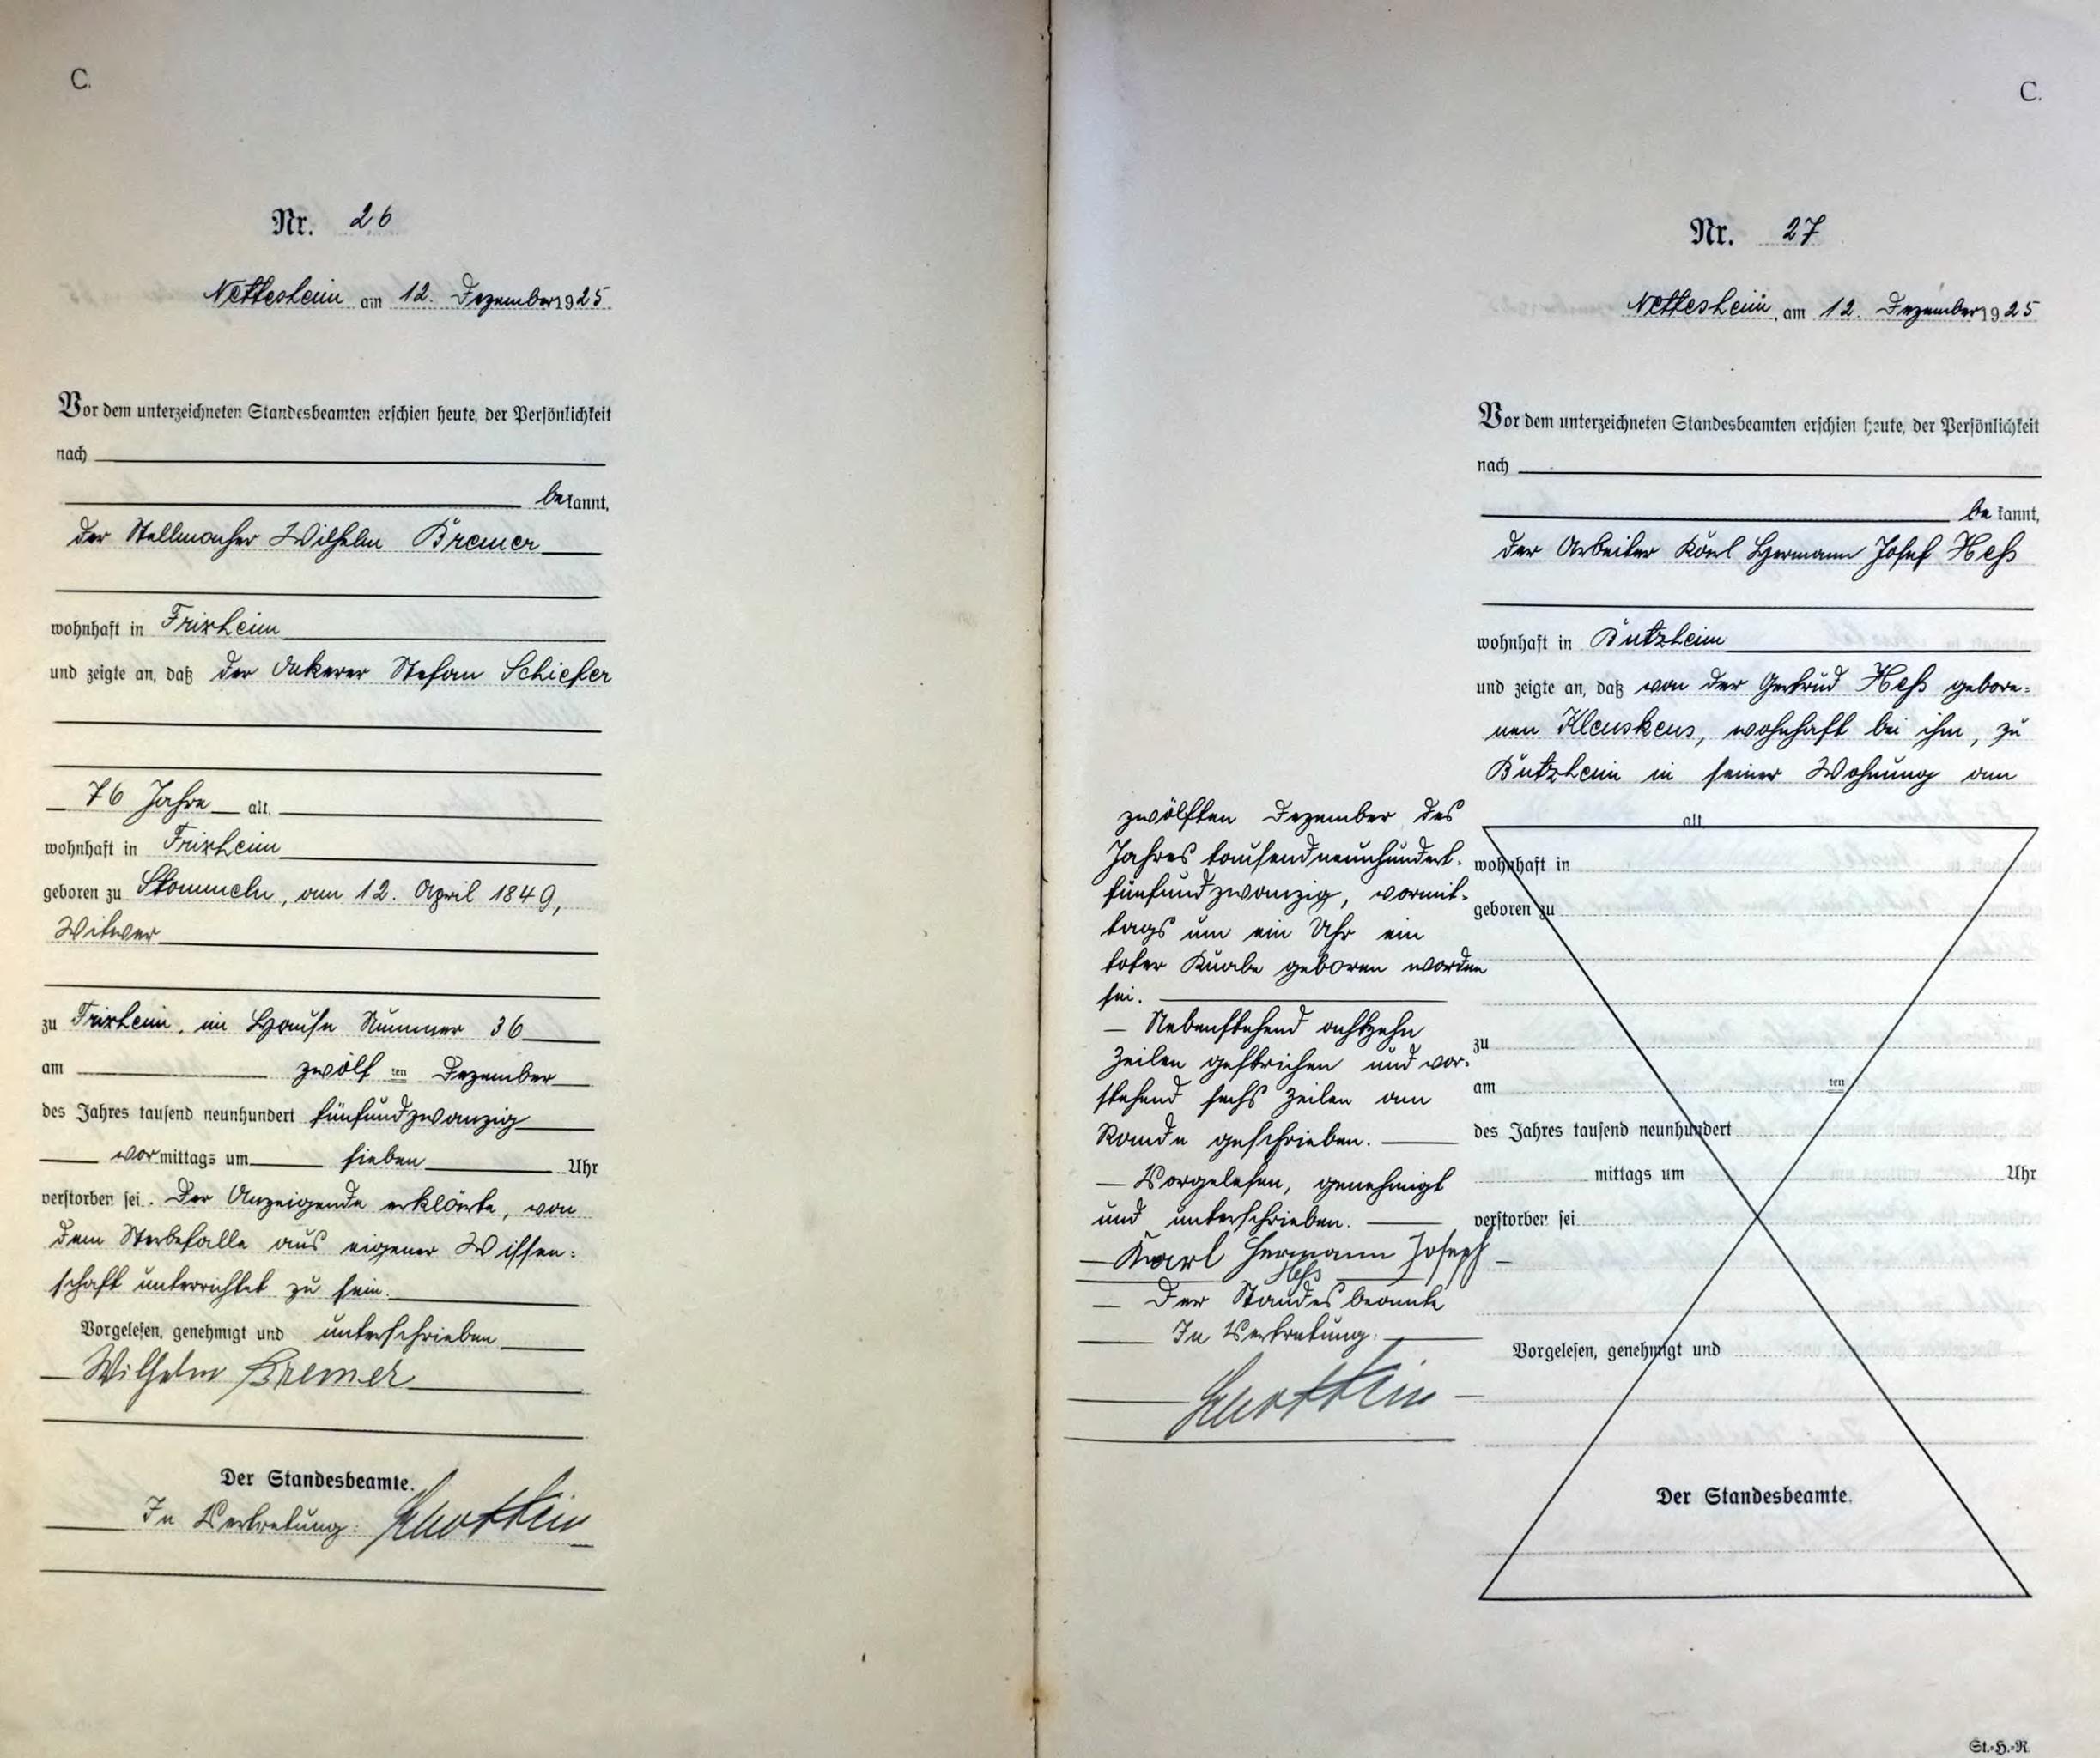 C.
Nr. 26
Nettesheim am 12. Dezember 1925
Vor dem unterzeichneten Standesbeamten erschien heute, der Persönlichkeit
nach
bekannt,
der Stellmacher Wilhelm Bremer
wohnhaft in Frixheim
und zeigte an, daß der Ackerer Stefan Schiefer
76 Jahre alt,
wohnhaft in Frixheim
geboren zu Stommeln, am 12. April 1849,
Witwer
zu Frixheim, im Hause Nummer 36
am zwölften Dezember
des Jahres tausend neunhundert fünfundzwanzig
vormittags um sieben Uhr
verstorben sei. Der Anzeigende erklärte, von
dem Sterbefalle aus eigener Wissen=
schaft unterrichtet zu sein.
Vorgelesen, genehmigt und unterschrieben
Wilhelm Bremer
Der Standesbeamte.
In Vertretung:
C.
Nr. 27
Nettesheim, am 12. Dezember 1925
Vor dem unterzeichneten Standesbeamten erschien heute, der Persönlichkeit
nach
bekannt,
der Arbeiter Karl Hermann Josef Heß
wohnhaft in Butzheim
und zeigte an, daß von der Gertrud Heß gebore=
nen Kleuskens, wohnhaft bei ihm, zu
Butzheim in seiner Wohnung am
zwölften Dezember des
Jahres tausendneunhundert-
fünfundzwanzig, vormit-
tags um ein Uhr ein
toter Knabe geboren worden
sei.
— Nebenstehend achtzehn
Zeilen gestrichen und vor=
stehend sechs Zeilen am
Rande geschrieben.
— Vorgelesen, genehmigt
und unterschrieben.
Karl Hermann Joseph
Heß
— Der Standesbeamte
In Vertretung:
alt
wohnhaft in
geboren zu
zu
am ten
des Jahres tausend neunhundert
mittags um Uhr
verstorben sei
Vorgelesen, genehmigt und
Der Standesbeamte.
St.=H.=R.